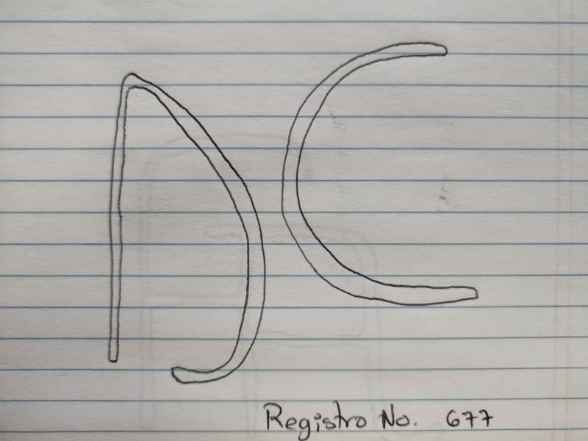 DC
Registro No. 677